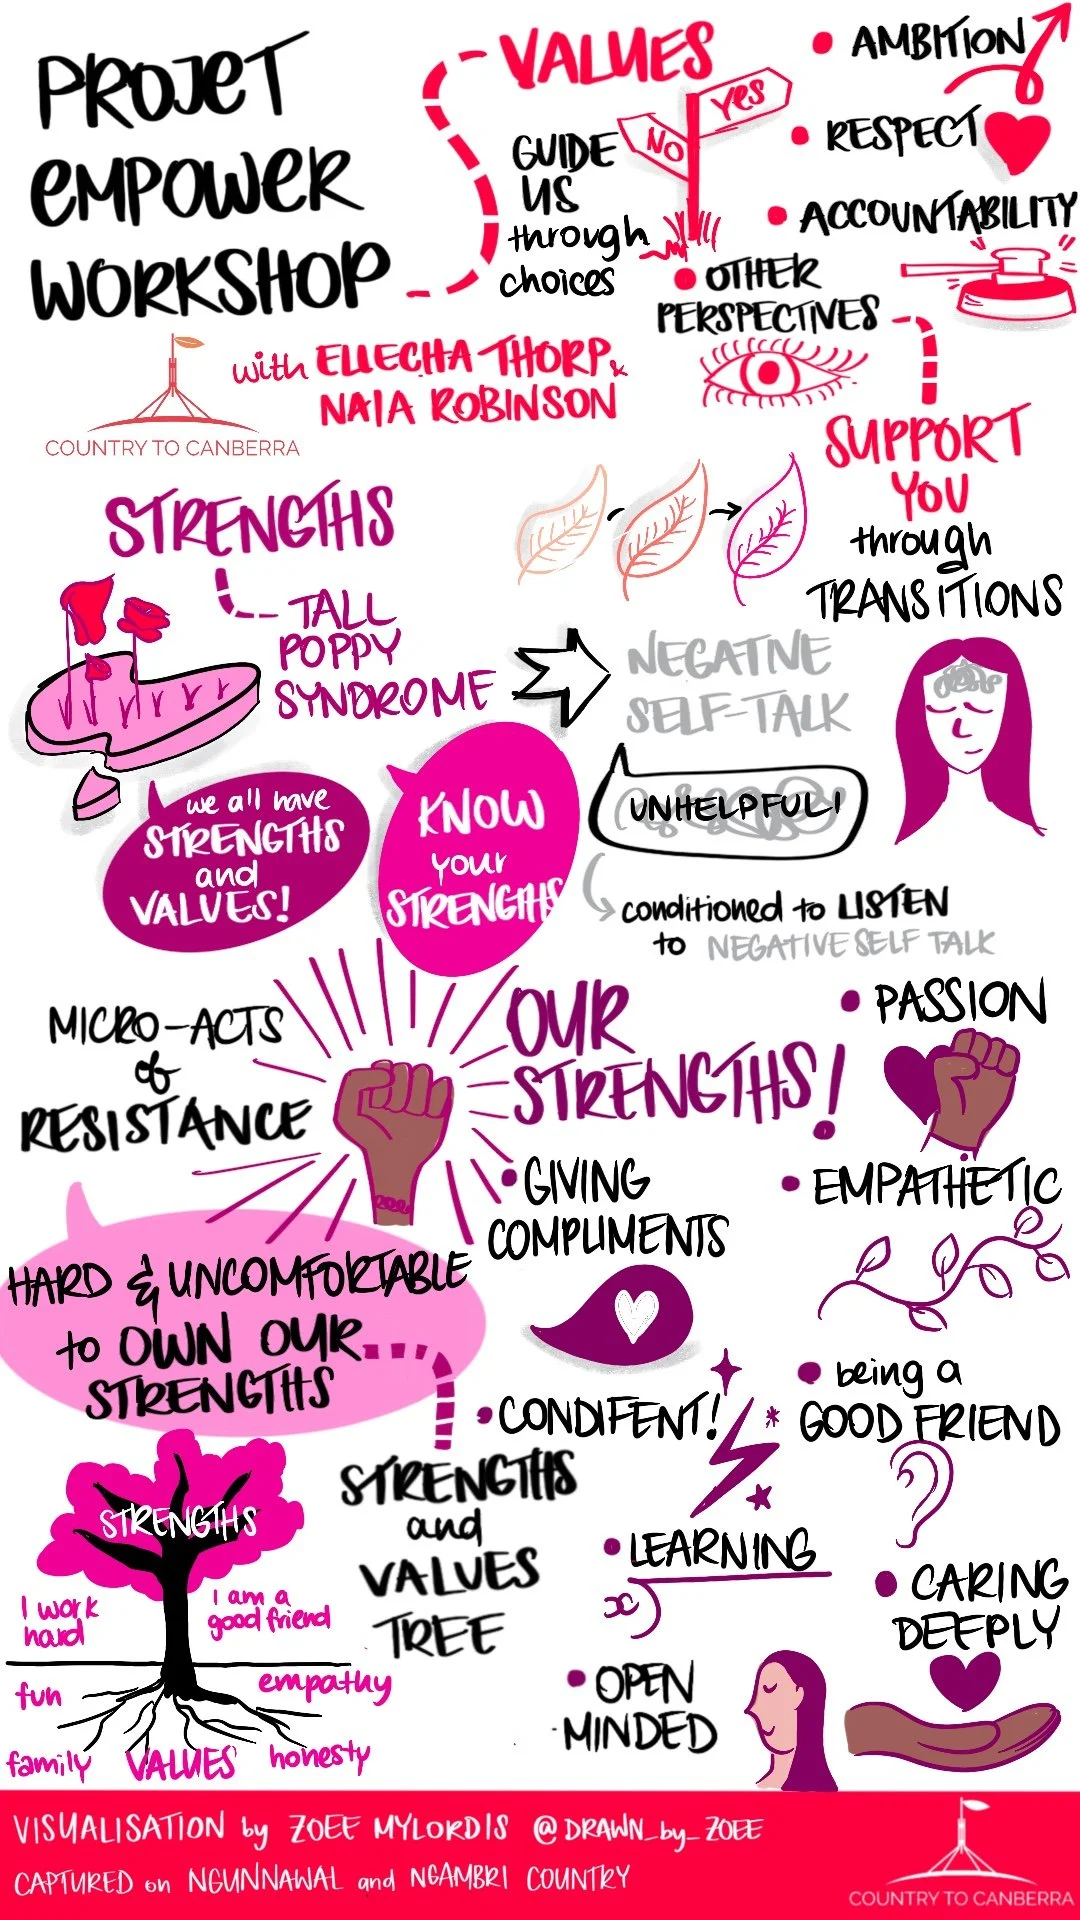 PROJET
EMPOWER
WORKSHOP
with ELLECHA THORP &
NAIA ROBINSON
COUNTRY TO CANBERRA
VALUES
GUIDE
US
through
choices
NO
Yes
• AMBITION
• RESPECT
• ACCOUNTABILITY
• OTHER
PERSPECTIVES
SUPPORT
YOU
through
TRANSITIONS
STRENGTHS
TALL
POPPY
SYNDROME
NEGATIVE
SELF-TALK
UNHELPFUL!
conditioned to LISTEN
to NEGATIVE SELF TALK
we all have
STRENGTHS
and
VALUES!
KNOW
your
STRENGTHS
MICRO-ACTS
of
RESISTANCE
HARD & UNCOMFORTABLE
to OWN OUR
STRENGTHS
OUR
STRENGTHS!
• PASSION
• GIVING
COMPLIMENTS
• EMPATHETIC
• CONDIFENT!
• being a
GOOD FRIEND
• LEARNING
• CARING
DEEPLY
• OPEN
MINDED
STRENGTHS
and
VALUES
TREE
STRENGTHS
I work
hard
I am a
good friend
fun
empathy
family
VALUES
honesty
VISUALISATION by ZOEE MYLORDIS @DRAWN_by_ZOEE
CAPTURED on NGUNNAWAL and NGAMBRI COUNTRY
COUNTRY TO CANBERRA